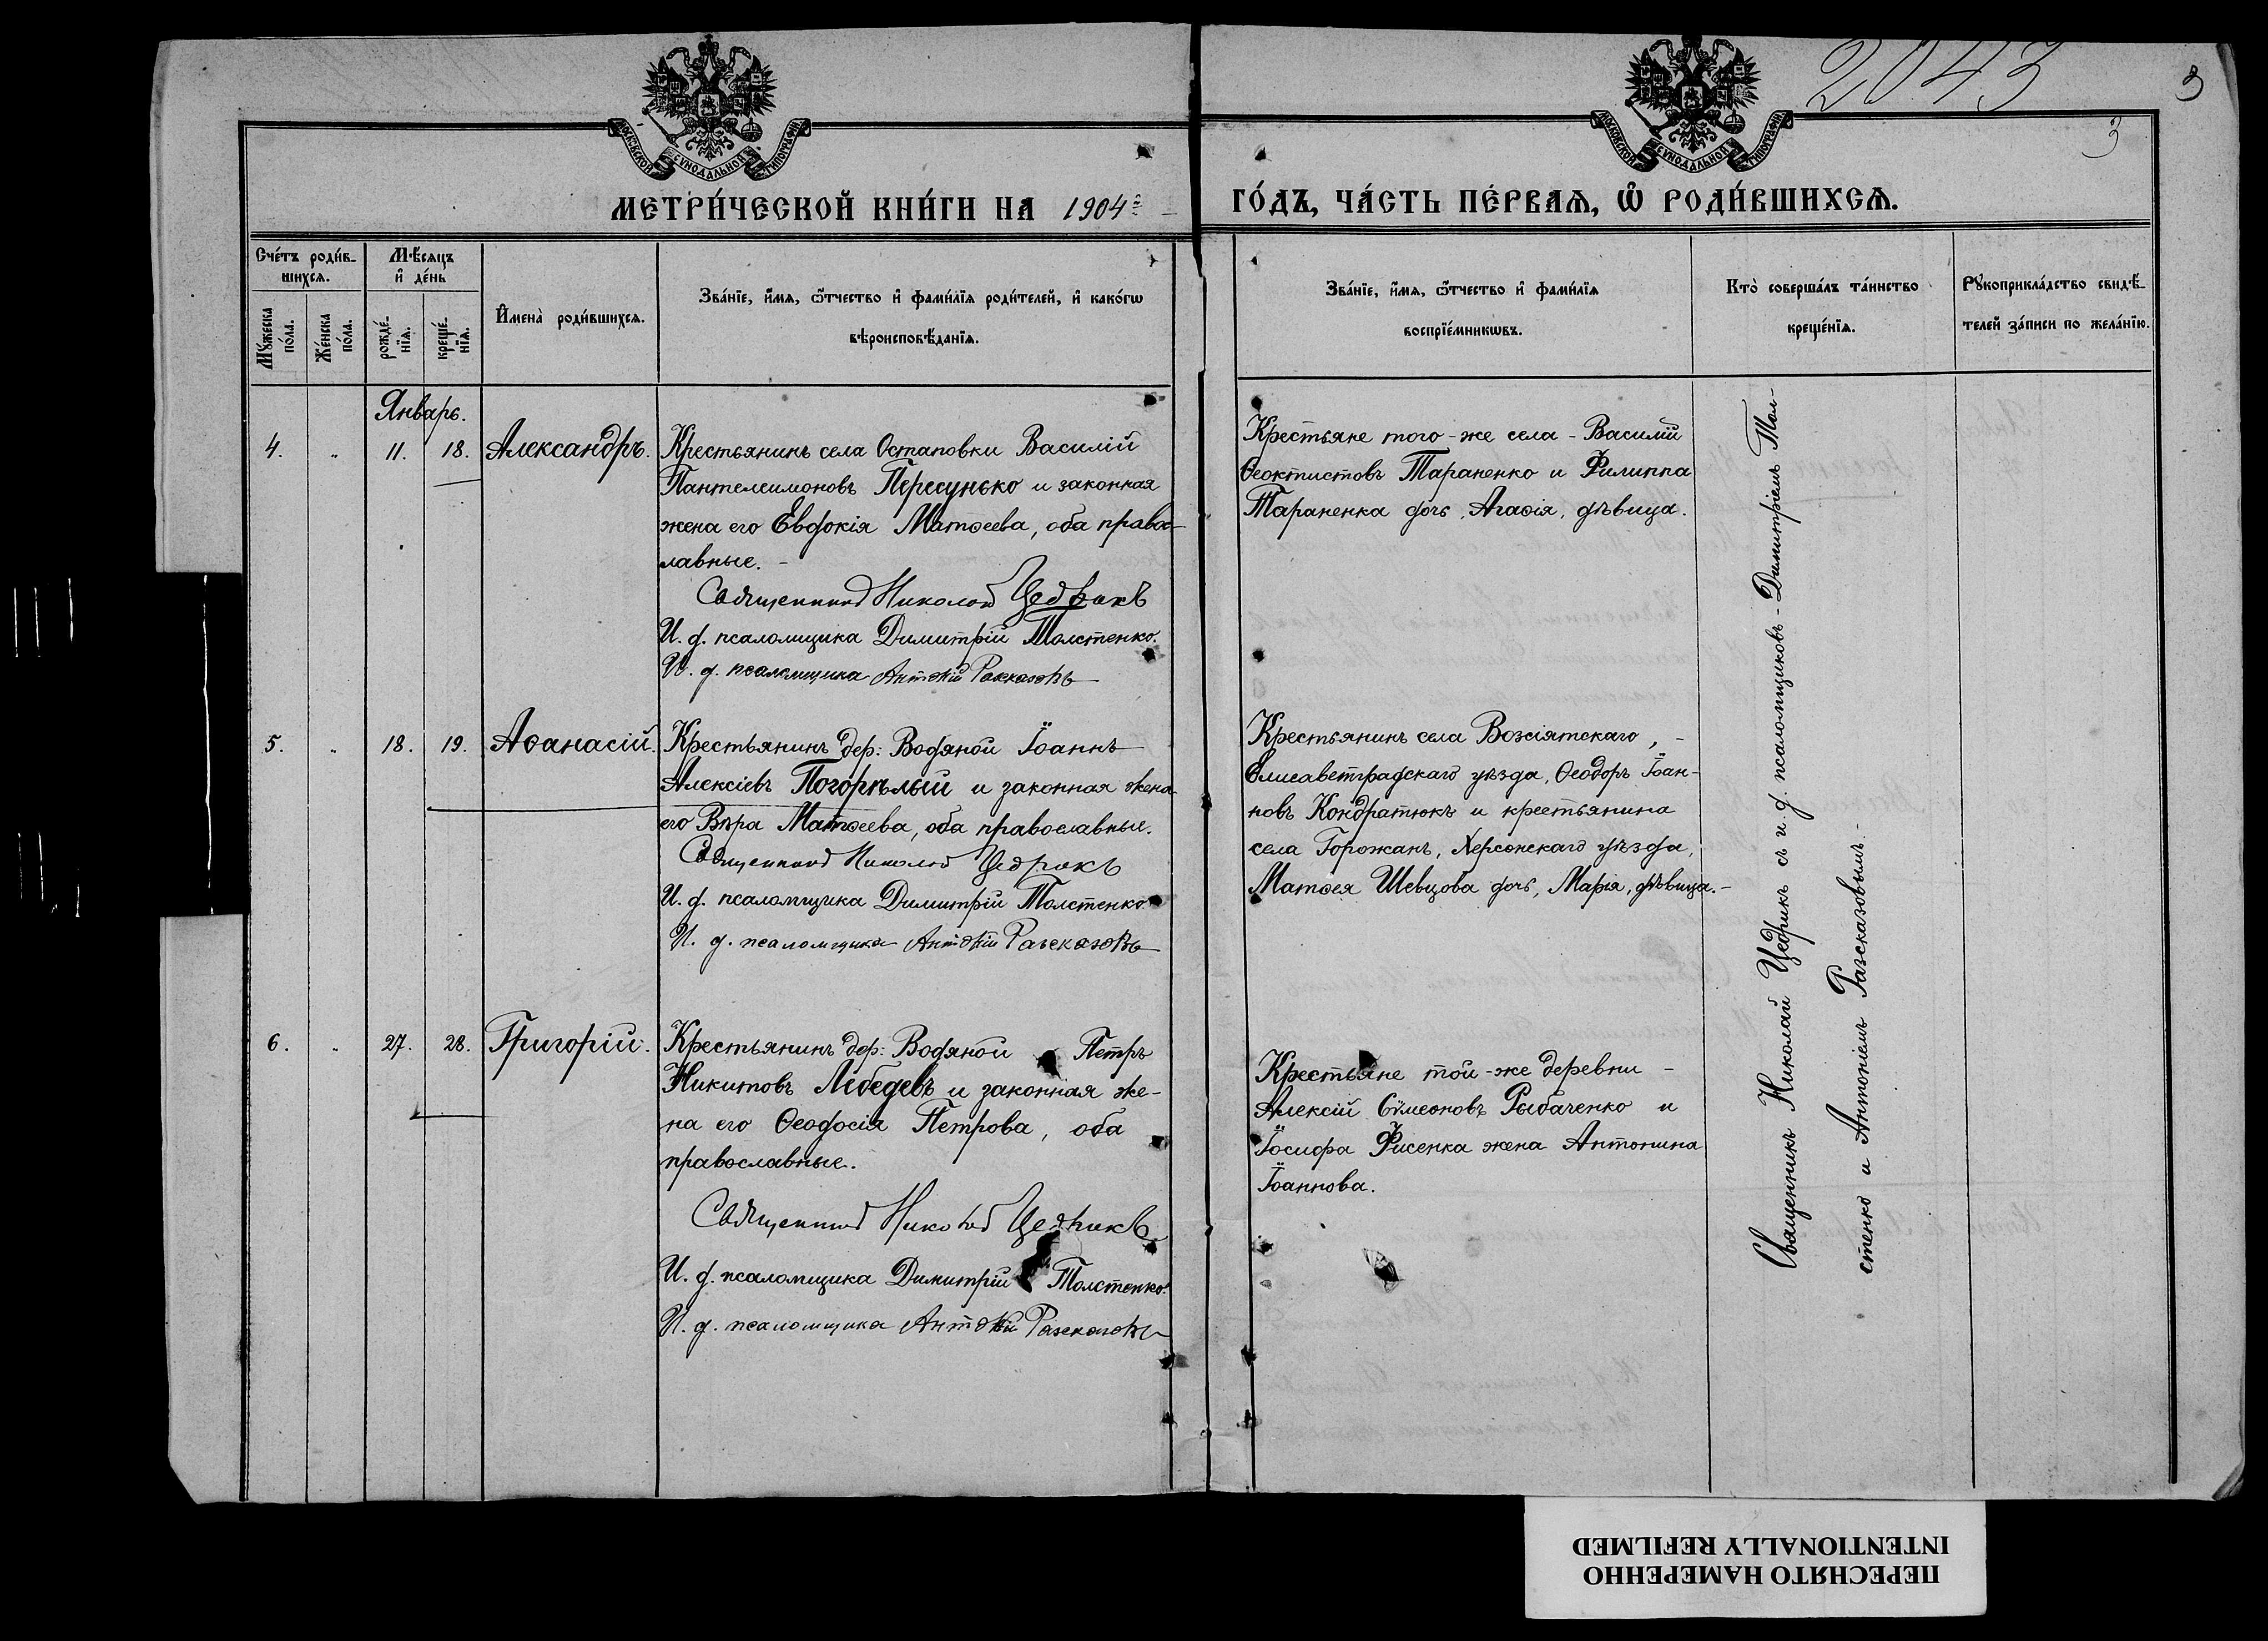 2043
3
3
МОСКОВСКОЙ СѴНОДАЛЬНОЙ ТИПОГРАФІИ
МОСКОВСКОЙ СѴНОДАЛЬНОЙ ТИПОГРАФІИ
МЕТРИ́ЧЕСКОЙ КНИ́ГИ НА 1904й ГО́ДЪ, ЧА́СТЬ ПЕ́РВАѦ, Ѡ҆ РОДИ́ВШИХСѦ.
Сче́тъ роди́в-
шихсѧ.
Мꙋ́жеска
по́ла.
Же́нска
по́ла.
Мѣ́сѧцъ
и҆ де́нь
рожде́-
нїѧ.
креще́-
нїѧ.
И҆мена̀ роди́вшихсѧ.
Зва́нїе, и҆́мѧ, ѻ҆́тчество и҆ фами́лїѧ роди́телей, и҆ како́гѡ
вѣроисповѣ́данїѧ.
Зва́нїе, и҆́мѧ, ѻ҆́тчество и҆ фами́лїѧ
воспрїе́мникѡвъ.
Кто̀ соверша́лъ та́инство
креще́нїѧ.
Рꙋкоприкла́дство свидѣ́-
телей за́писи по жела́нїю.
Январь.
4. „ 11. 18. Александръ.
Крестьянинъ села Остаповки Василій
Пантелеимоновъ Пересунько и законная
жена его Евдокія Матѳеева, оба правос-
лавные. -
Священникъ Николай Цедрикъ
И. д. псаломщика Димитрій Толстенко.
И. д. псаломщика Антоній Разсказовъ
Крестьяне того-же села - Василій
Ѳеоктистовъ Тараненко и Филиппа
Тараненка дочь, Агаѳія, дѣвица.
5. „ 18. 19. Аѳанасій.
Крестьянинъ дер: Водяной Іоаннъ
Алексіевъ Погорѣлый и законная жена
его Вѣра Матѳеева, оба православные.
Священникъ Николай Цедрикъ
И. д. псаломщика Димитрій Толстенко
И. д. псаломщика Антоній Разсказовъ
Крестьянинъ села Возсіятскаго, -
Елисаветградскаго уѣзда, Ѳеодоръ Іоан-
новъ Кондратюкъ и крестьянина
села Горожанъ, Херсонскаго уѣзда,
Матѳея Шевцова дочь, Марія, дѣвица. -
6. „ 27. 28. Григорій.
Крестьянинъ дер: Водяной Петръ
Никитовъ Лебедевъ и законная же-
на его Ѳеодосія Петрова, оба
православные.
Священникъ Николай Цедрикъ
И. д. псаломщика Димитрій Толстенко.
И. д. псаломщика Антоній Разсказовъ
Крестьяне той-же деревни -
Алексій Сѵмеоновъ Рыбаченко и
Іосифа Фисенка жена Антонина
Іоаннова.
Священникъ Николай Цедрикъ съ и. д. псаломщиковъ - Димитріемъ Тол-
стенко и Антоніемъ Разсказовымъ. -
ПЕРЕСНЯТО НАМЕРЕННО
INTENTIONALLY REFILMED